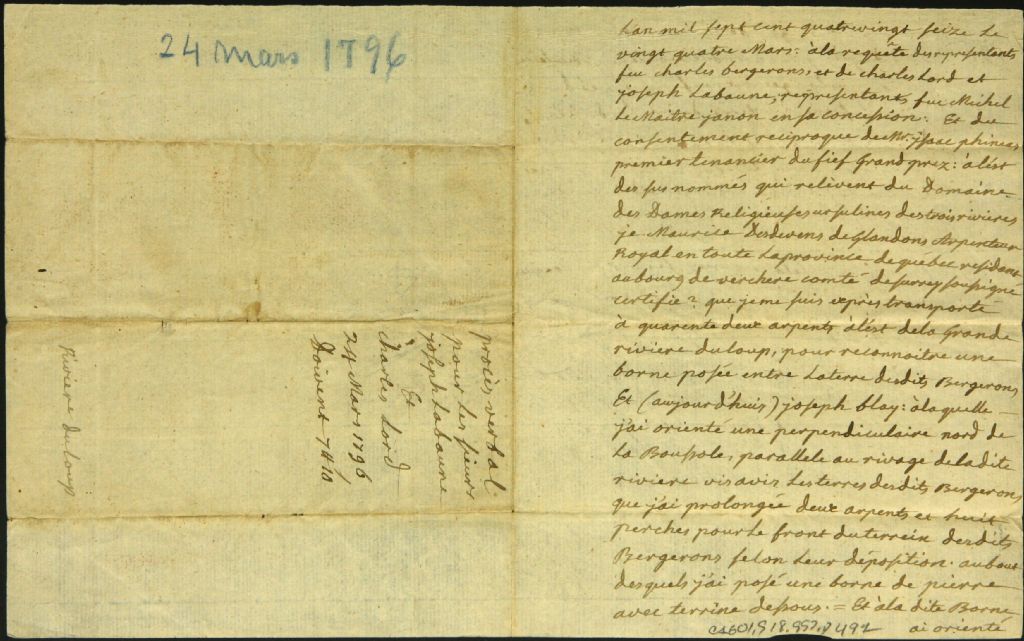 24 mars 1796
procès verbal
pour les sieurs
joseph Labaune
Et
Charles Lord
24 Mars 1796
Doivent 7# 10
Riviere du loup
Lan mil sept cent quatrevingt seize Le
vingt quatre Mars: àla requête des representants
feu charles bergerons, et de charles Lord et
joseph Labaune, representants, feu Michel
Le Maitre janon en sa concession: Et du
consentement reciproque de Mr. jsaac phineas
premier tenancier du fief Grandprez: à lést
des sus nommés qui relèvent du Domaine
des Dames Religieuses ursulines destrois rivieres
je Maurice Desdevens de Glandons Arpenteur
Royal en toute Laprovince de quebec residant
aubourg de verchere comté de surrey soussigné
certifie que jeme suis expres transporté
à quarente deux arpents àlést dela Grande
riviere duloup, pour reconnoitre une
borne posée entre Laterre desdits Bergerons
Et (aujourd'huis) joseph blay: àlaquelle
j'ai orienté une perpendiculaire nord de
La Boussole, parallele au rivage deladite
riviere vis avis Lesterres desdits Bergerons
que j'ai prolongée deux arpents et huit
perches pour Le front du terrein desdits
Bergerons selon Leur déposition. aubout
desquels j'ai posé une borne de pierre
avec terrine dessous. = Et àla dite Borne
ai orienté
CA601,S18,SS2,P492